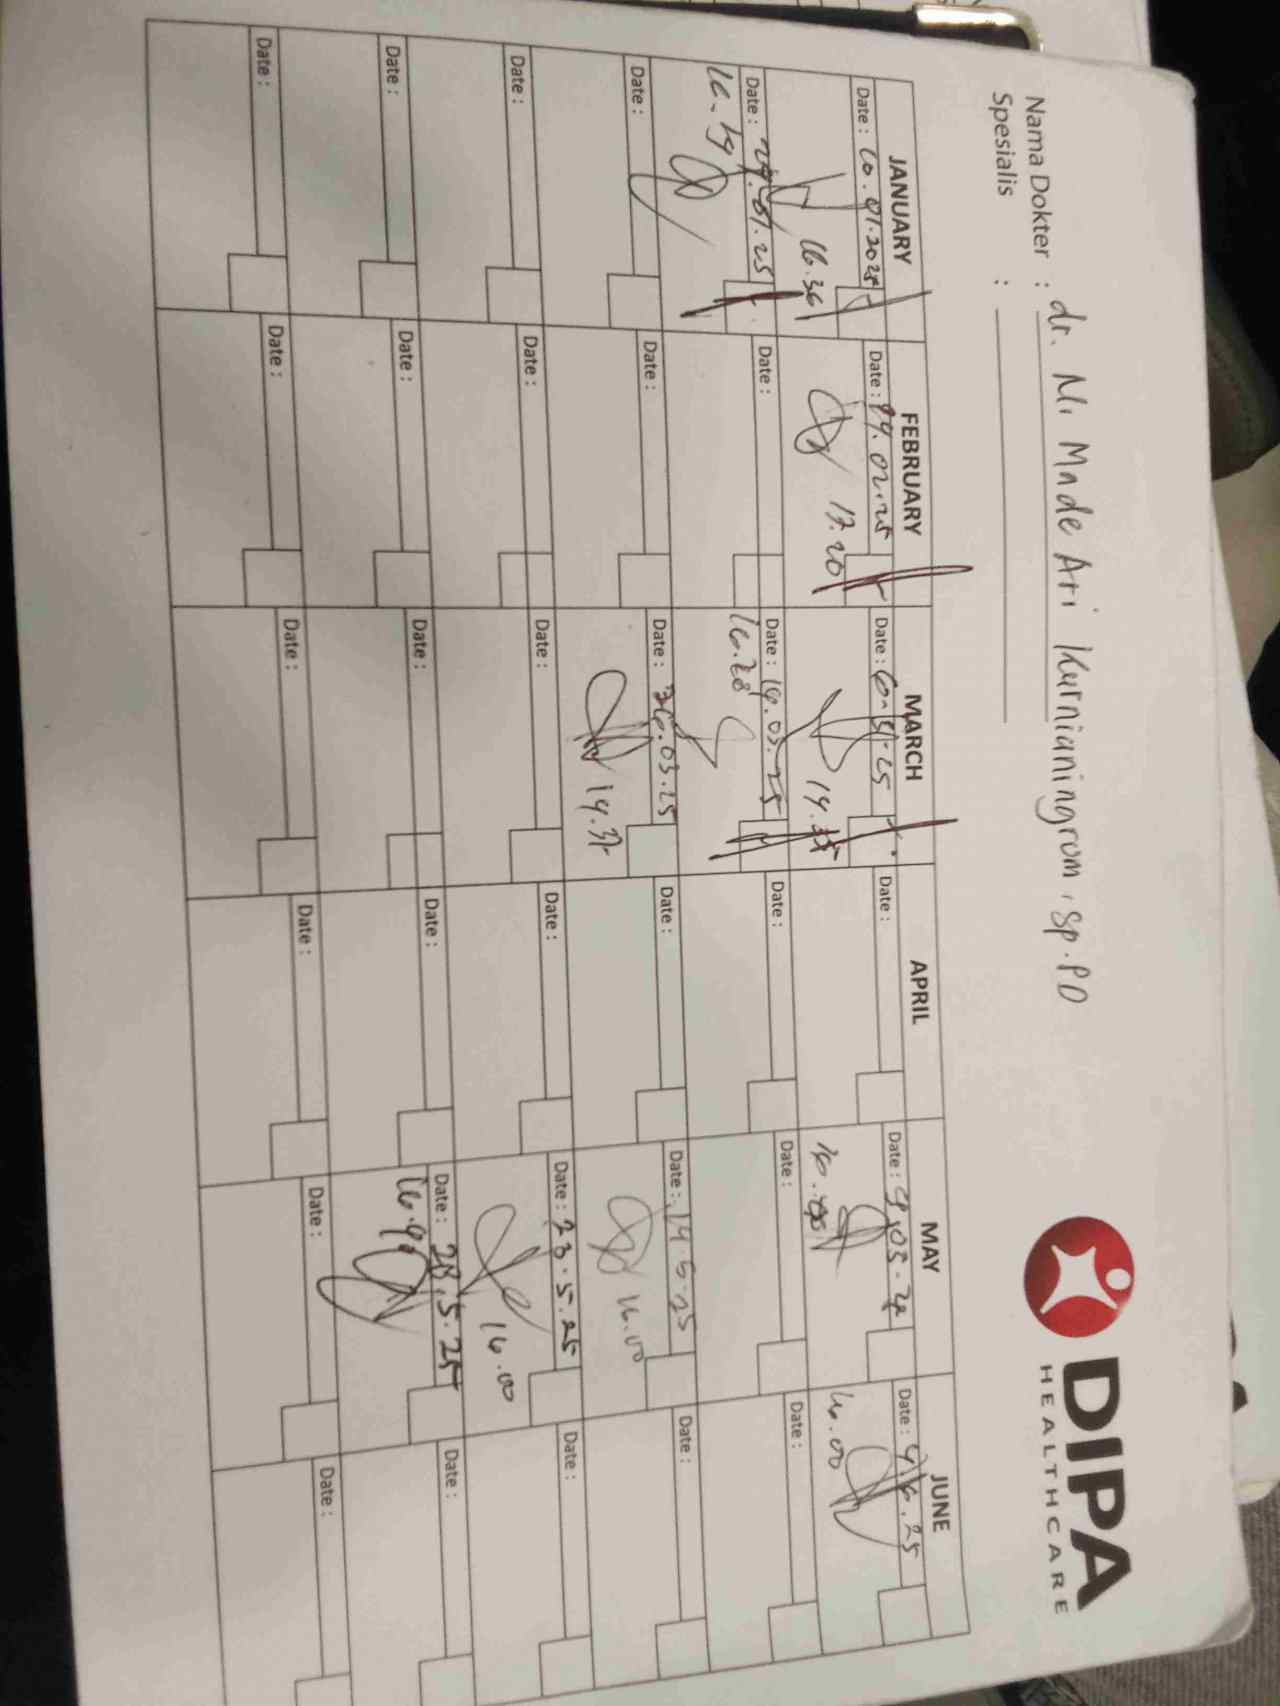 DIPA
HEALTHCARE
Nama Dokter : dr. Ni Made Ari Kurnianingrum, Sp.PD
Spesialis :
JANUARY FEBRUARY MARCH APRIL MAY JUNE
Date : 10.01.2025 Date : 19.02.25 Date : Date : Date : Date : 4.6.25
16.36 17.20 14.35 16.00
Date : 29.01.25 Date : Date : 19.03.25 Date : Date : Date :
16.28
Date : Date : Date : 26.03.25 Date : Date : 14.5.25 Date :
14.37 16.00
Date : Date : Date : Date : Date : 23.5.25 Date :
16.00
Date : Date : Date : Date : Date : 28.5.25 Date :
Date : Date : Date : Date : Date : Date :